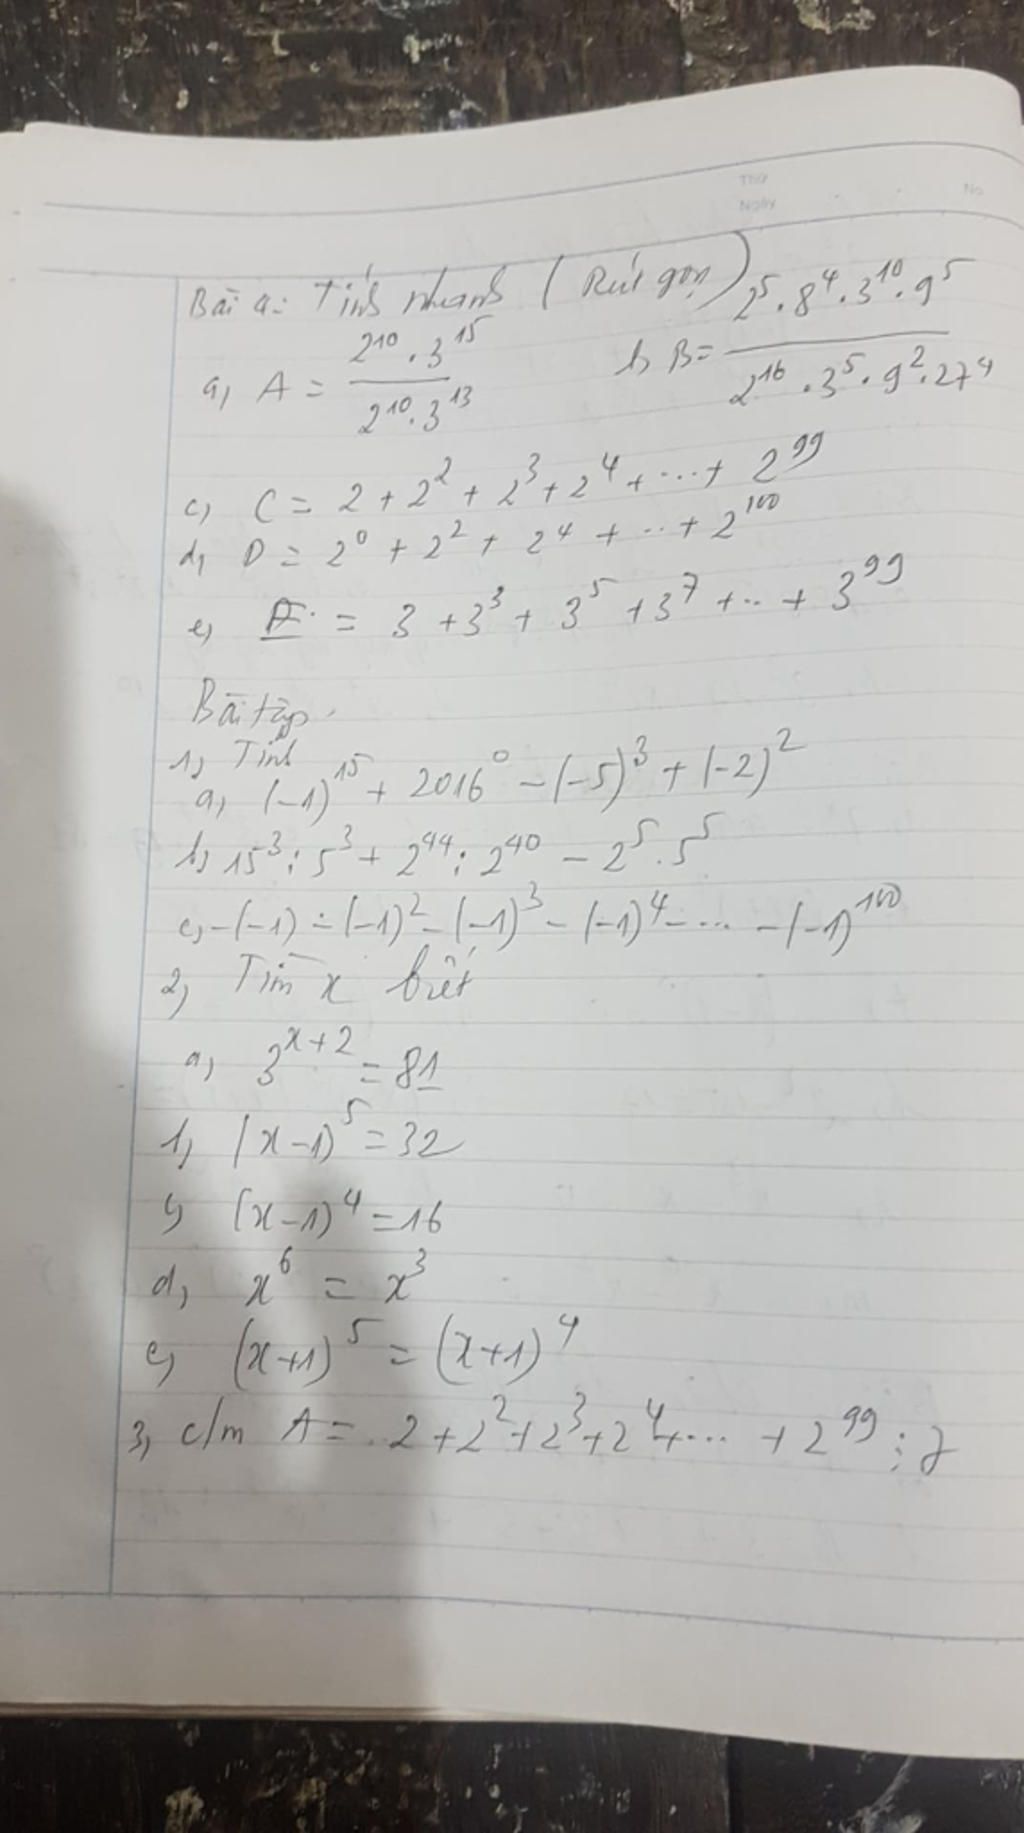 Thứ
Ngày
No
Bài 4: Tính nhanh (Rút gọn)
a, A = (2^10 . 3^15) / (2^10 . 3^13)
b, B = (2^5 . 8^4 . 3^10 . 9^5) / (2^16 . 3^5 . 9^2 . 27^4)
c, C = 2 + 2^2 + 2^3 + 2^4 + ... + 2^99
d, D = 2^0 + 2^2 + 2^4 + ... + 2^100
e, E = 3 + 3^3 + 3^5 + 3^7 + ... + 3^99
Bài tập.
1, Tính
a, (-1)^15 + 2016^0 - (-5)^3 + (-2)^2
b, 15^3 : 5^3 + 2^44 : 2^40 - 2^5 . 5^5
c, -(-1) - (-1)^2 - (-1)^3 - (-1)^4 - ... - (-1)^100
2, Tìm x biết
a, 3^(x+2) = 81
b, (x-1)^5 = 32
c, (x-1)^4 = 16
d, x^6 = x^3
e, (x+1)^5 = (x+1)^4
3, c/m A = 2 + 2^2 + 2^3 + 2^4 + ... + 2^99 ⋮ 7